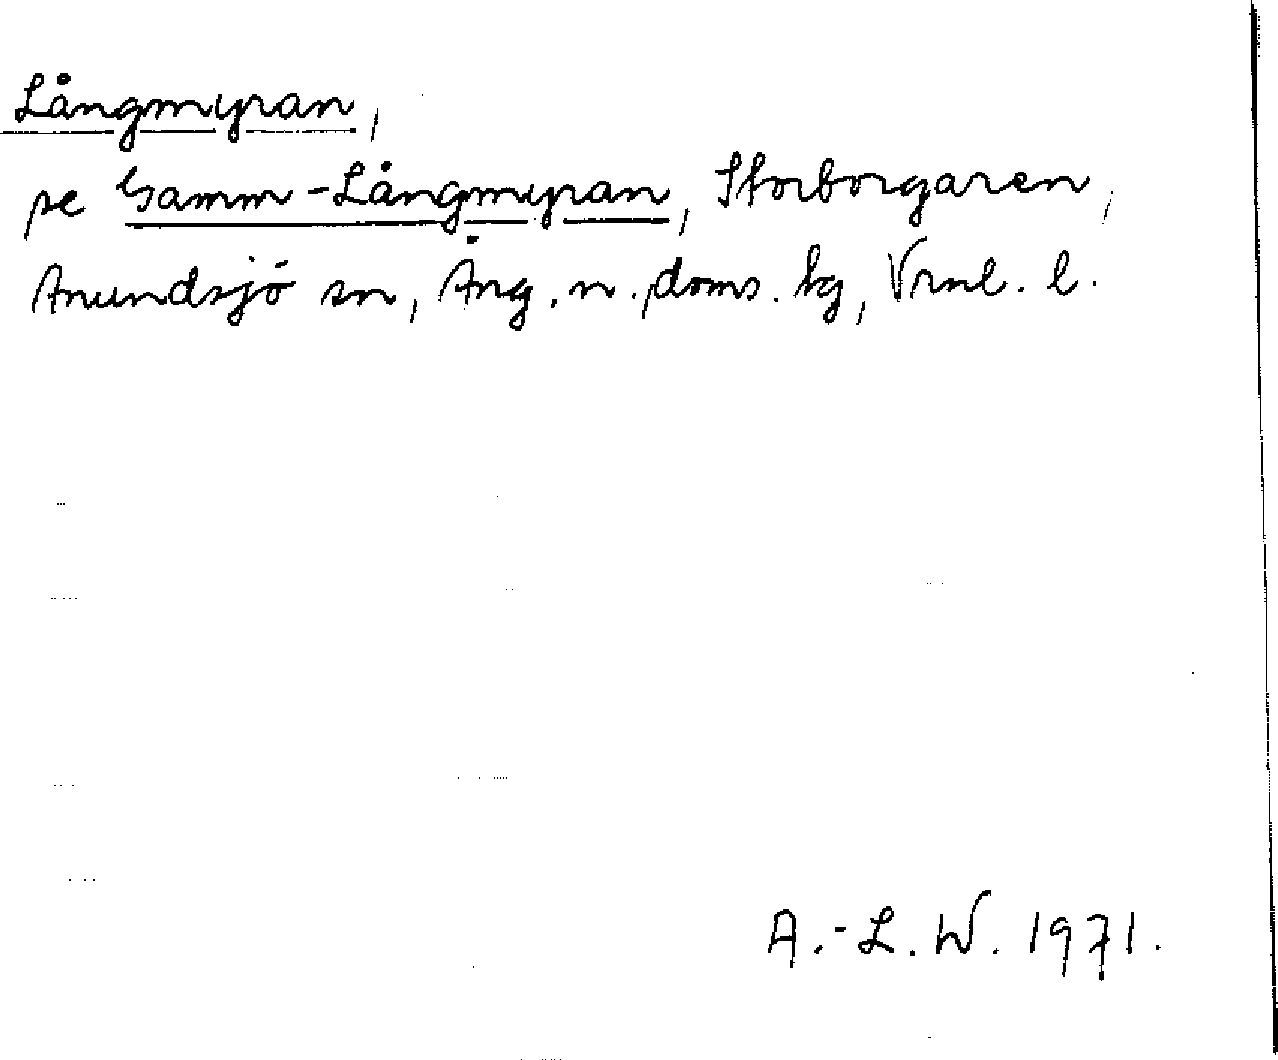 Långmyran,
se Gamm-Långmyran, Storborgaren,
Anundsjö sn, Ång. n. doms. hg, Vrnl. l.
A.-L. W. 1971.